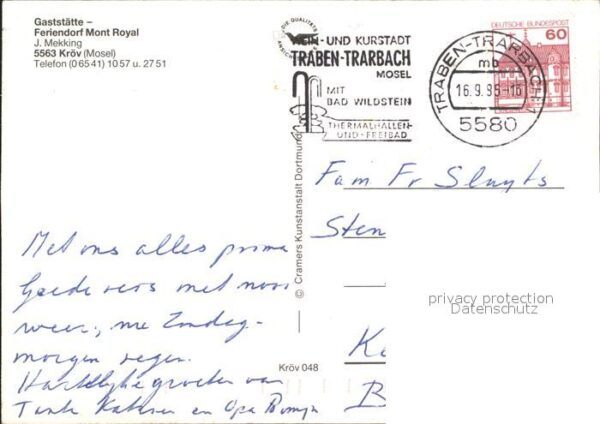 Gaststätte –
Feriendorf Mont Royal
J. Mekking
5563 Kröv (Mosel)
Telefon (0 65 41) 10 57 u. 27 51
DIE QUALITÄTS
WEIN- UND KURSTADT
TRABEN-TRARBACH
MOSEL
MIT
BAD WILDSTEIN
THERMALHALLEN-
UND-FREIBAD
TRABEN-TRARBACH 1
mb
16.9.85-16
5580
DEUTSCHE BUNDESPOST
60
© Cramers Kunstanstalt Dortmund
Fam Fr Sluyts
Sten
Met ons alles prima
Goede reis met mooi
weer, nu Zondag-
morgen regen.
Hartelijke groeten van
Tante en Opa
Kröv 048
privacy protection
Datenschutz